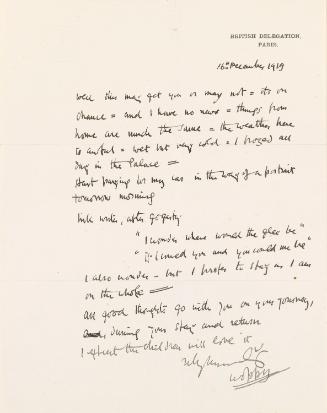 BRITISH DELEGATION,
PARIS.
16th December 1919
Well this may get you or may not = its on
chance = and I have no news = things from
home are much the same = the weather here
is awful = wet but very cold = I froze all
day in the Palace =
start for my in the way of a portrait
tomorrow morning
writes, after
"I wonder where would the glee be"
"if I were you and you would me be"
I also wonder - but I prefer to stay as I am
on the whole =
all good thoughts go with you on your journey,
during your stay and return
I expect the children will love it